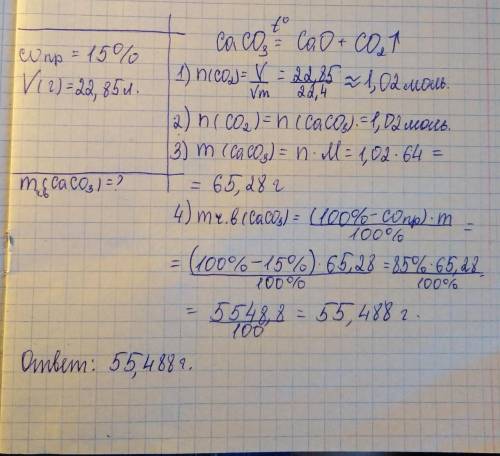 ωпр = 15%
V(г)=22,85л.
mч.в(CaCO₃)=?
t°
CaCO₃ = CaO + CO₂↑
1) n(CO₂)= V/Vm = 22,85/22,4 ≈ 1,02 моль.
2) n(CO₂) = n(CaCO₃).=1,02 моль.
3) m(CaCO₃)= n·M= 1,02·64 =
= 65,28 г
4) mч.в(CaCO₃) = (100%-ωпр)·m/100% =
= (100%-15%)·65,28/100% = 85%·65,28/100%
= 5548,8/100 = 55,488 г.
Ответ: 55,488г.